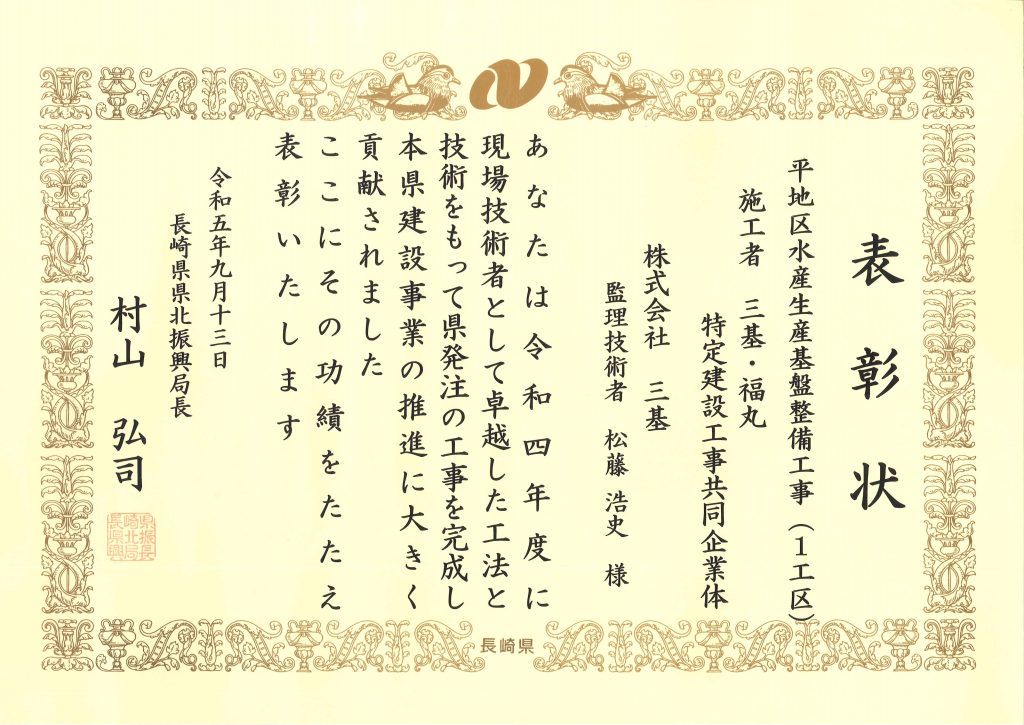 表彰状
平地区水産生産基盤整備工事（１工区）
施工者　三基・福丸
特定建設工事共同企業体
株式会社　三基
監理技術者　松藤 浩史　様
あなたは令和四年度に
現場技術者として卓越した工法と
技術をもって県発注の工事を完成し
本県建設事業の推進に大きく
貢献されました
ここにその功績をたたえ
表彰いたします
令和五年九月十三日
長崎県県北振興局長
村山　弘司
長崎県
県振長
崎北局
長県興